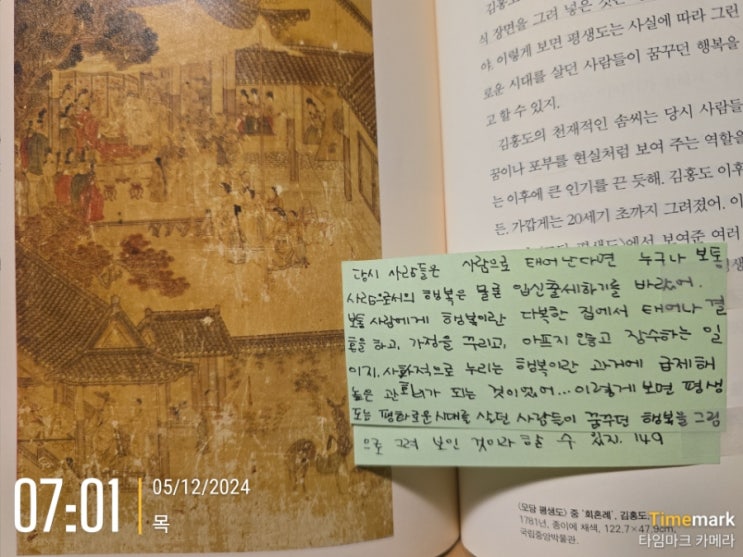 김홍
식 장면을 그려 넣은 것은
야. 이렇게 보면 평생도는 사실에 따라 그린
로운 시대를 살던 사람들이 꿈꾸던 행복을
고 할 수 있지.
김홍도의 천재적인 솜씨는 당시 사람들
꿈이나 포부를 현실처럼 보여 주는 역할을
는 이후에 큰 인기를 끈 듯해. 김홍도 이후
든. 가깝게는 20세기 초까지 그려졌어. 이
평생도>에서 보여준 여러
당시 사람들은 사람으로 태어난다면 누구나 보통
사람으로서의 행복은 물론 입신출세하기를 바랐어.
보통 사람에게 행복이란 다복한 집에서 태어나 결
혼을 하고, 가정을 꾸리고, 아프지 않고 장수하는 일
이지. 사회적으로 누리는 행복이란 과거에 급제해
높은 관리가 되는 것이었어... 이렇게 보면 평생
도는 평화로운 시대를 살던 사람들이 꿈꾸던 행복을 그림
으로 그려 보인 것이라 할 수 있지. 149
<모당 평생도> 중 '회혼례', 김홍도,
1781년, 종이에 채색, 122.7×47.9cm,
국립중앙박물관.
07:01
05/12/2024
목
Timemark
타임마크 카메라